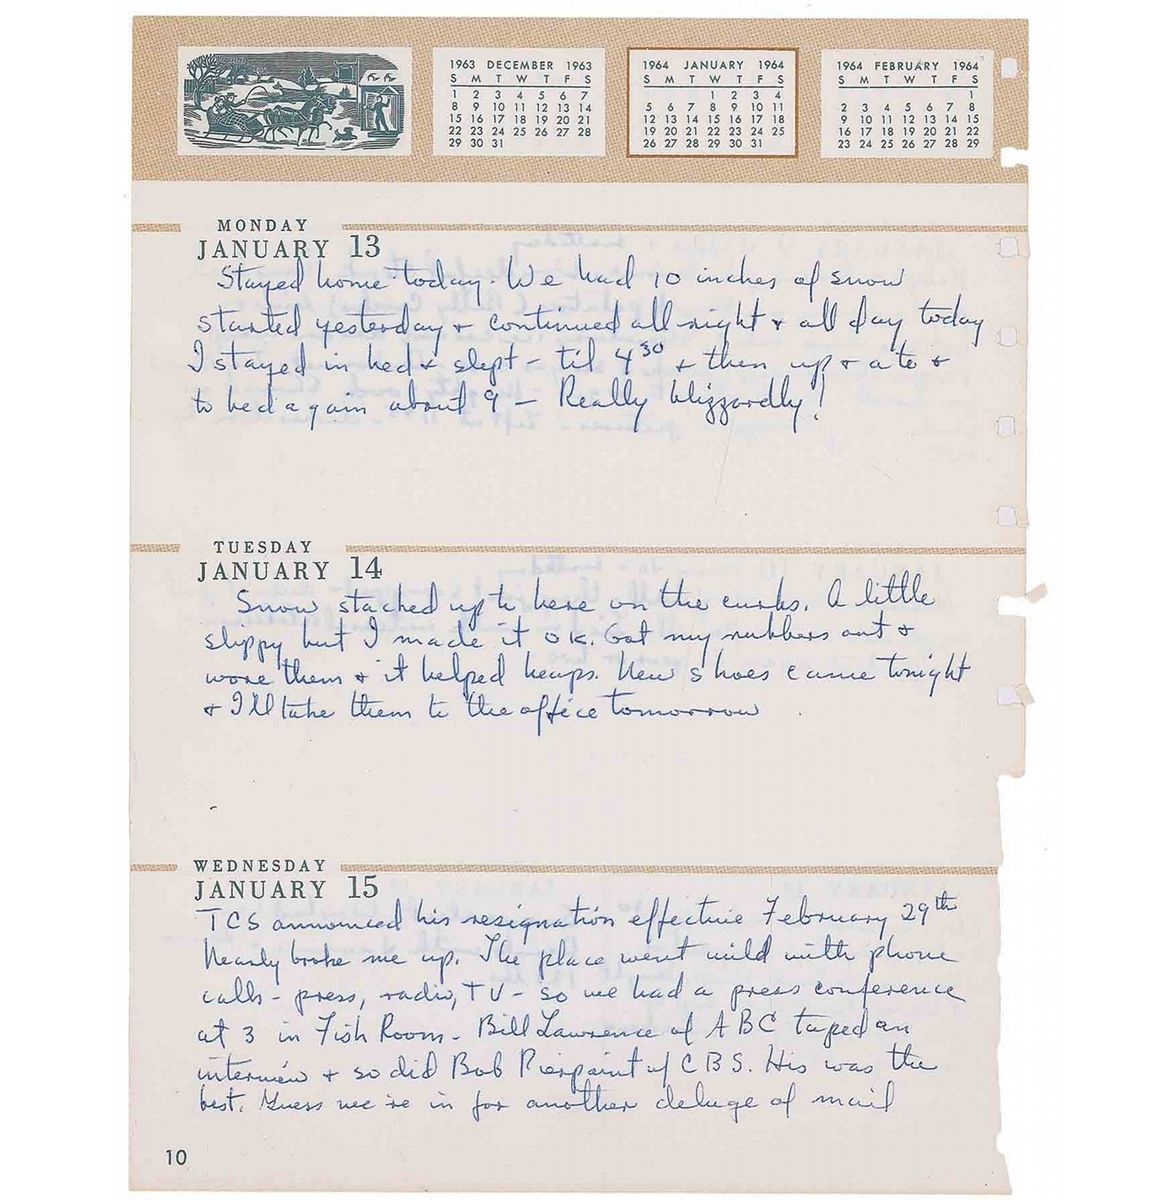 1963 DECEMBER 1963
S M T W T F S
1 2 3 4 5 6 7
8 9 10 11 12 13 14
15 16 17 18 19 20 21
22 23 24 25 26 27 28
29 30 31
1964 JANUARY 1964
S M T W T F S
1 2 3 4
5 6 7 8 9 10 11
12 13 14 15 16 17 18
19 20 21 22 23 24 25
26 27 28 29 30 31
1964 FEBRUARY 1964
S M T W T F S
1
2 3 4 5 6 7 8
9 10 11 12 13 14 15
16 17 18 19 20 21 22
23 24 25 26 27 28 29
MONDAY
JANUARY 13
Stayed home today. We had 10 inches of snow
started yesterday & continued all night & all day today
I stayed in bed & slept - til 4 30 & then up & ate &
to bed again about 9 - Really blizzardly!
TUESDAY
JANUARY 14
Snow stacked up to here on the curbs. A little
slippy but I made it OK. Got my rubbers out &
wore them & it helped heaps. New shoes came tonight
& I'll take them to the office tomorrow
WEDNESDAY
JANUARY 15
TCS announced his resignation effective February 29th
Nearly broke me up. The place went wild with phone
calls - press, radio, TV - so we had a press conference
at 3 in Fish Room. Bill Lawrence of ABC taped an
interview & so did Bob Pierpoint of CBS. His was the
best. Guess we're in for another deluge of mail
10